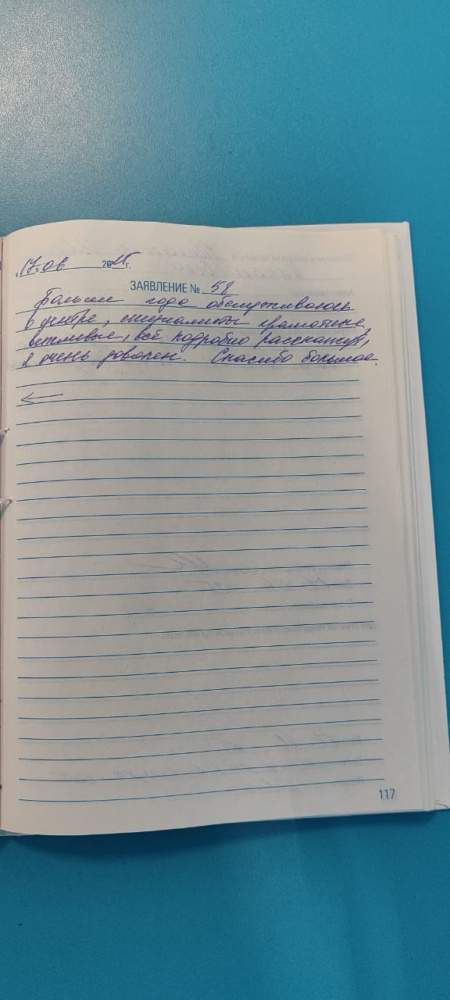 „17„ 08 2025г.
ЗАЯВЛЕНИЕ № 58
Больше года обслуживаюсь
в центре, специалисты грамотные
вежливые, всё подробно расскажут,
я очень доволен. Спасибо большое.
117